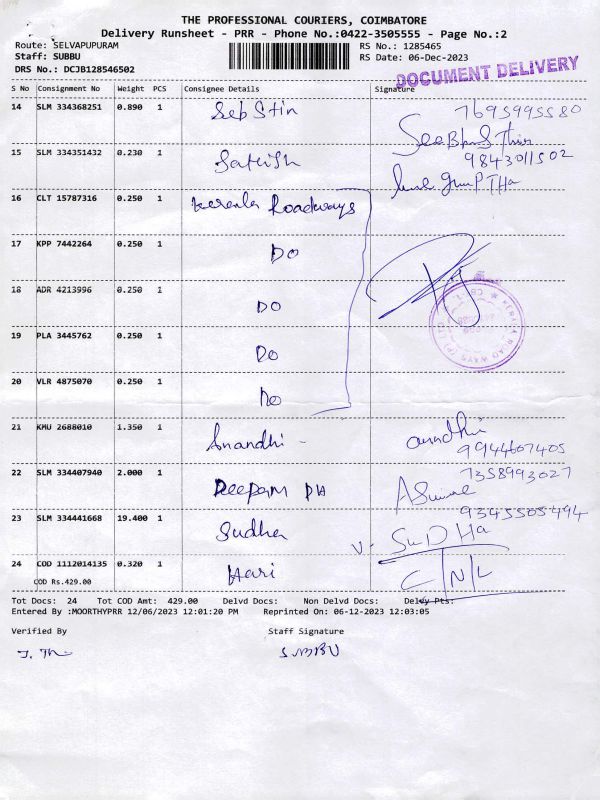 THE PROFESSIONAL COURIERS, COIMBATORE
Delivery Runsheet - PRR - Phone No.:0422-3505555 - Page No.:2
Route: SELVAPUPURAM RS No.: 1285465
Staff: SUBBU RS Date: 06-Dec-2023
DRS No.: DCJB128546502
DOCUMENT DELIVERY
S No Consignment No Weight PCS Consignee Details Signature
14 SLM 334368251 0.890 1 Seb Stin 7695995580
15 SLM 334351432 0.230 1 Satish 9843011502
16 CLT 15787316 0.250 1 Kerala Roadways
17 KPP 7442264 0.250 1 DO
18 ADR 4213996 0.250 1 DO
19 PLA 3445762 0.250 1 DO
20 VLR 4875070 0.250 1 DO
21 KMU 2688010 1.350 1 Anandhi - anandhi
9944607405
22 SLM 334407940 2.000 1 Deepam 7358993027
23 SLM 334441668 19.400 1 Sudha 9345505494
V. SuDHa
24 COD 1112014135 0.320 1 Hari C/N/L
COD Rs.429.00
Tot Docs: 24 Tot COD Amt: 429.00 Delvd Docs: Non Delvd Docs: Delvy Pts:
Entered By :MOORTHYPRR 12/06/2023 12:01:20 PM Reprinted On: 06-12-2023 12:03:05
Verified By Staff Signature
SUBBU